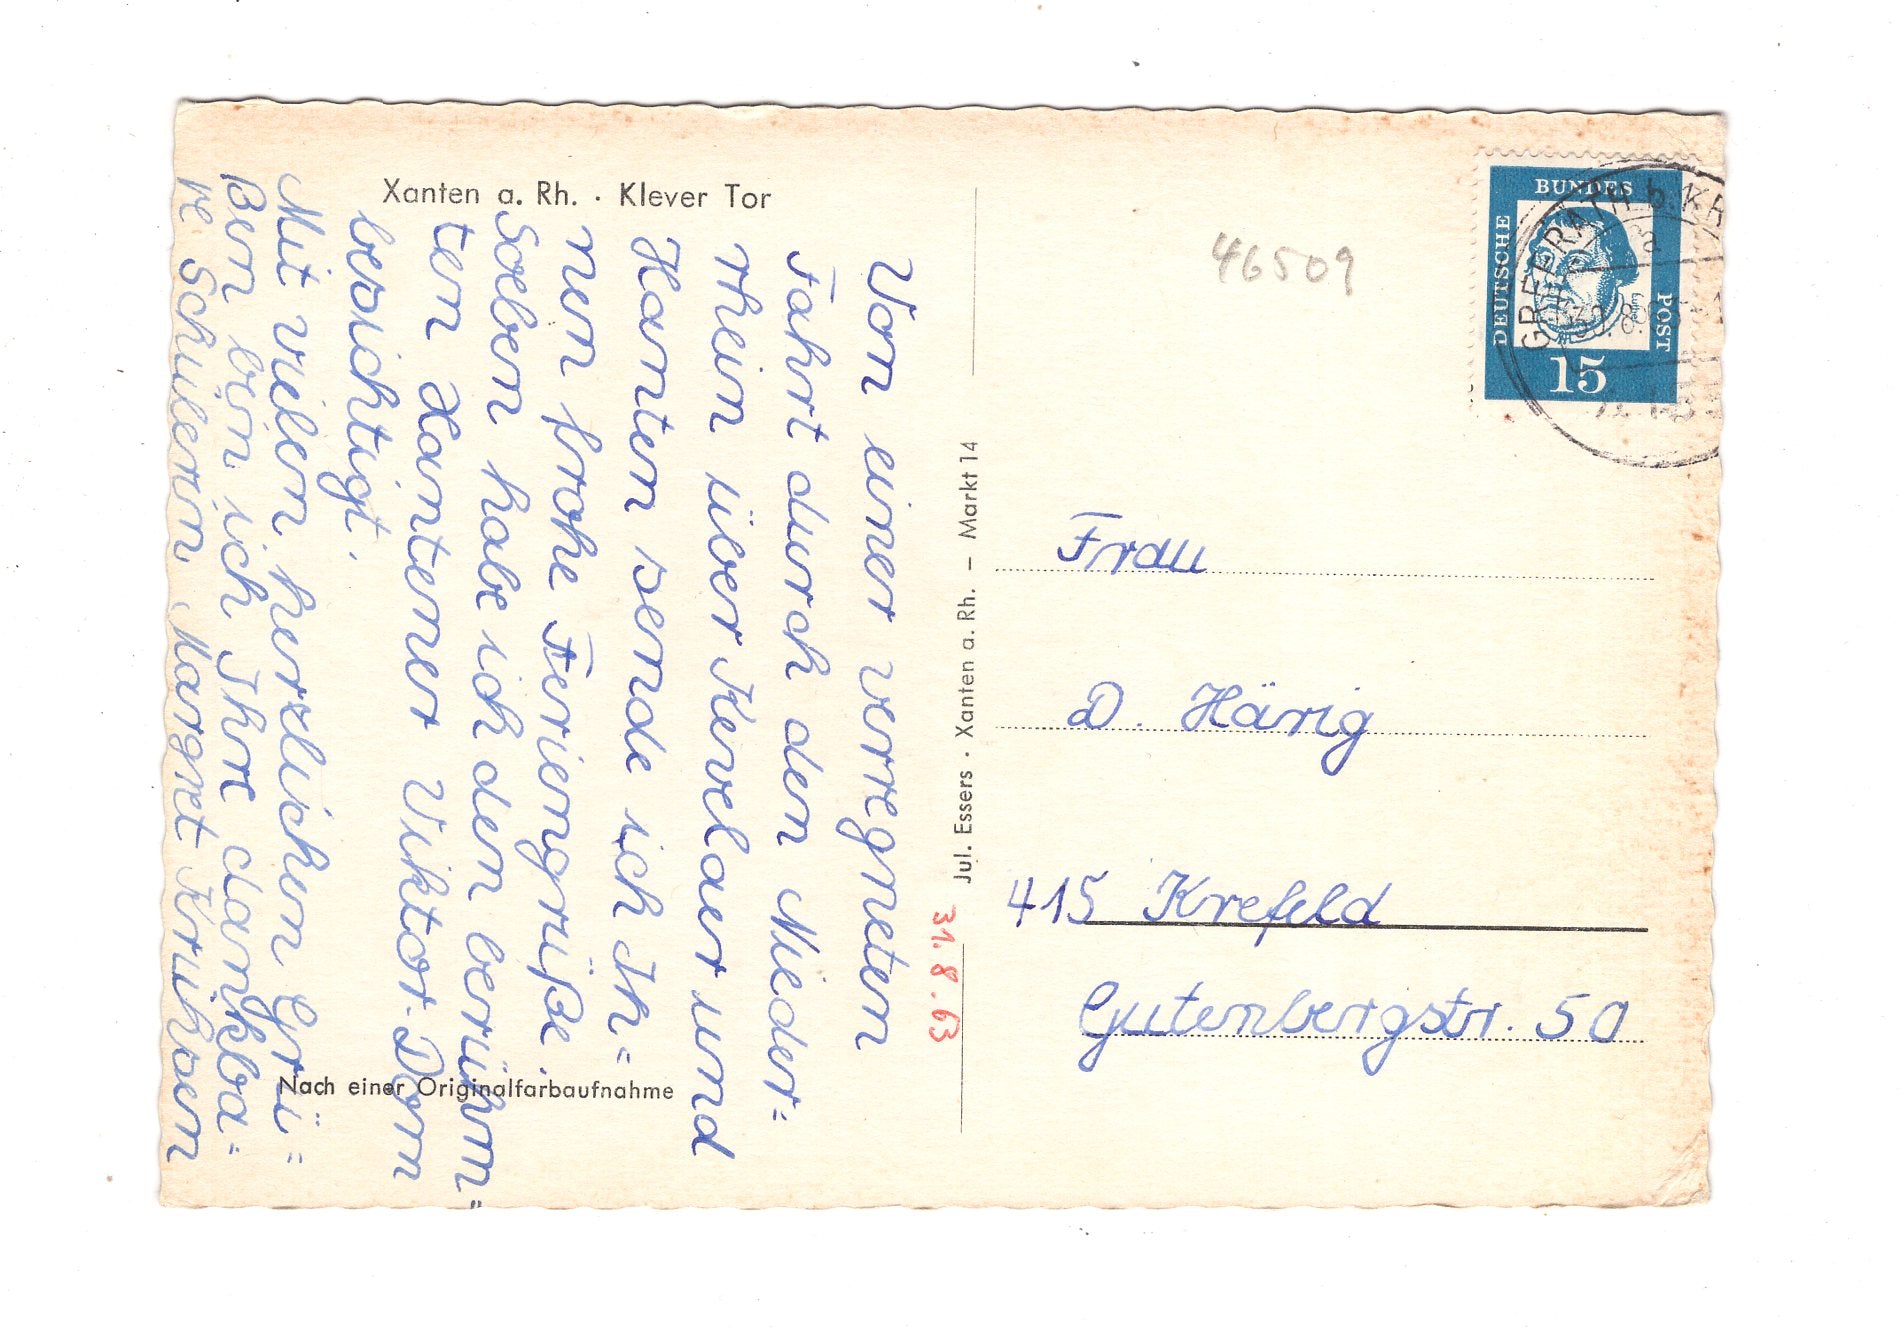 Xanten a. Rh. · Klever Tor
Von einer verregneten
Fahrt durch den Nieder=
rhein über Kevelaer und
Xanten sende ich Ih=
nen frohe Feriengrüße.
Soeben habe ich den berühm=
ten Xantener Viktor-Dom
besichtigt.
Mit vielen herzlichen Grü=
ßen bin ich Ihre dankba=
re Schülerin Margret
Nach einer Originalfarbaufnahme
Jul. Essers · Xanten a. Rh. – Markt 14
31.8.63
46509
DEUTSCHE
BUNDES
POST
15
GREFRATH b. KR
Frau
D. Härig
415 Krefeld
Gutenbergstr. 50